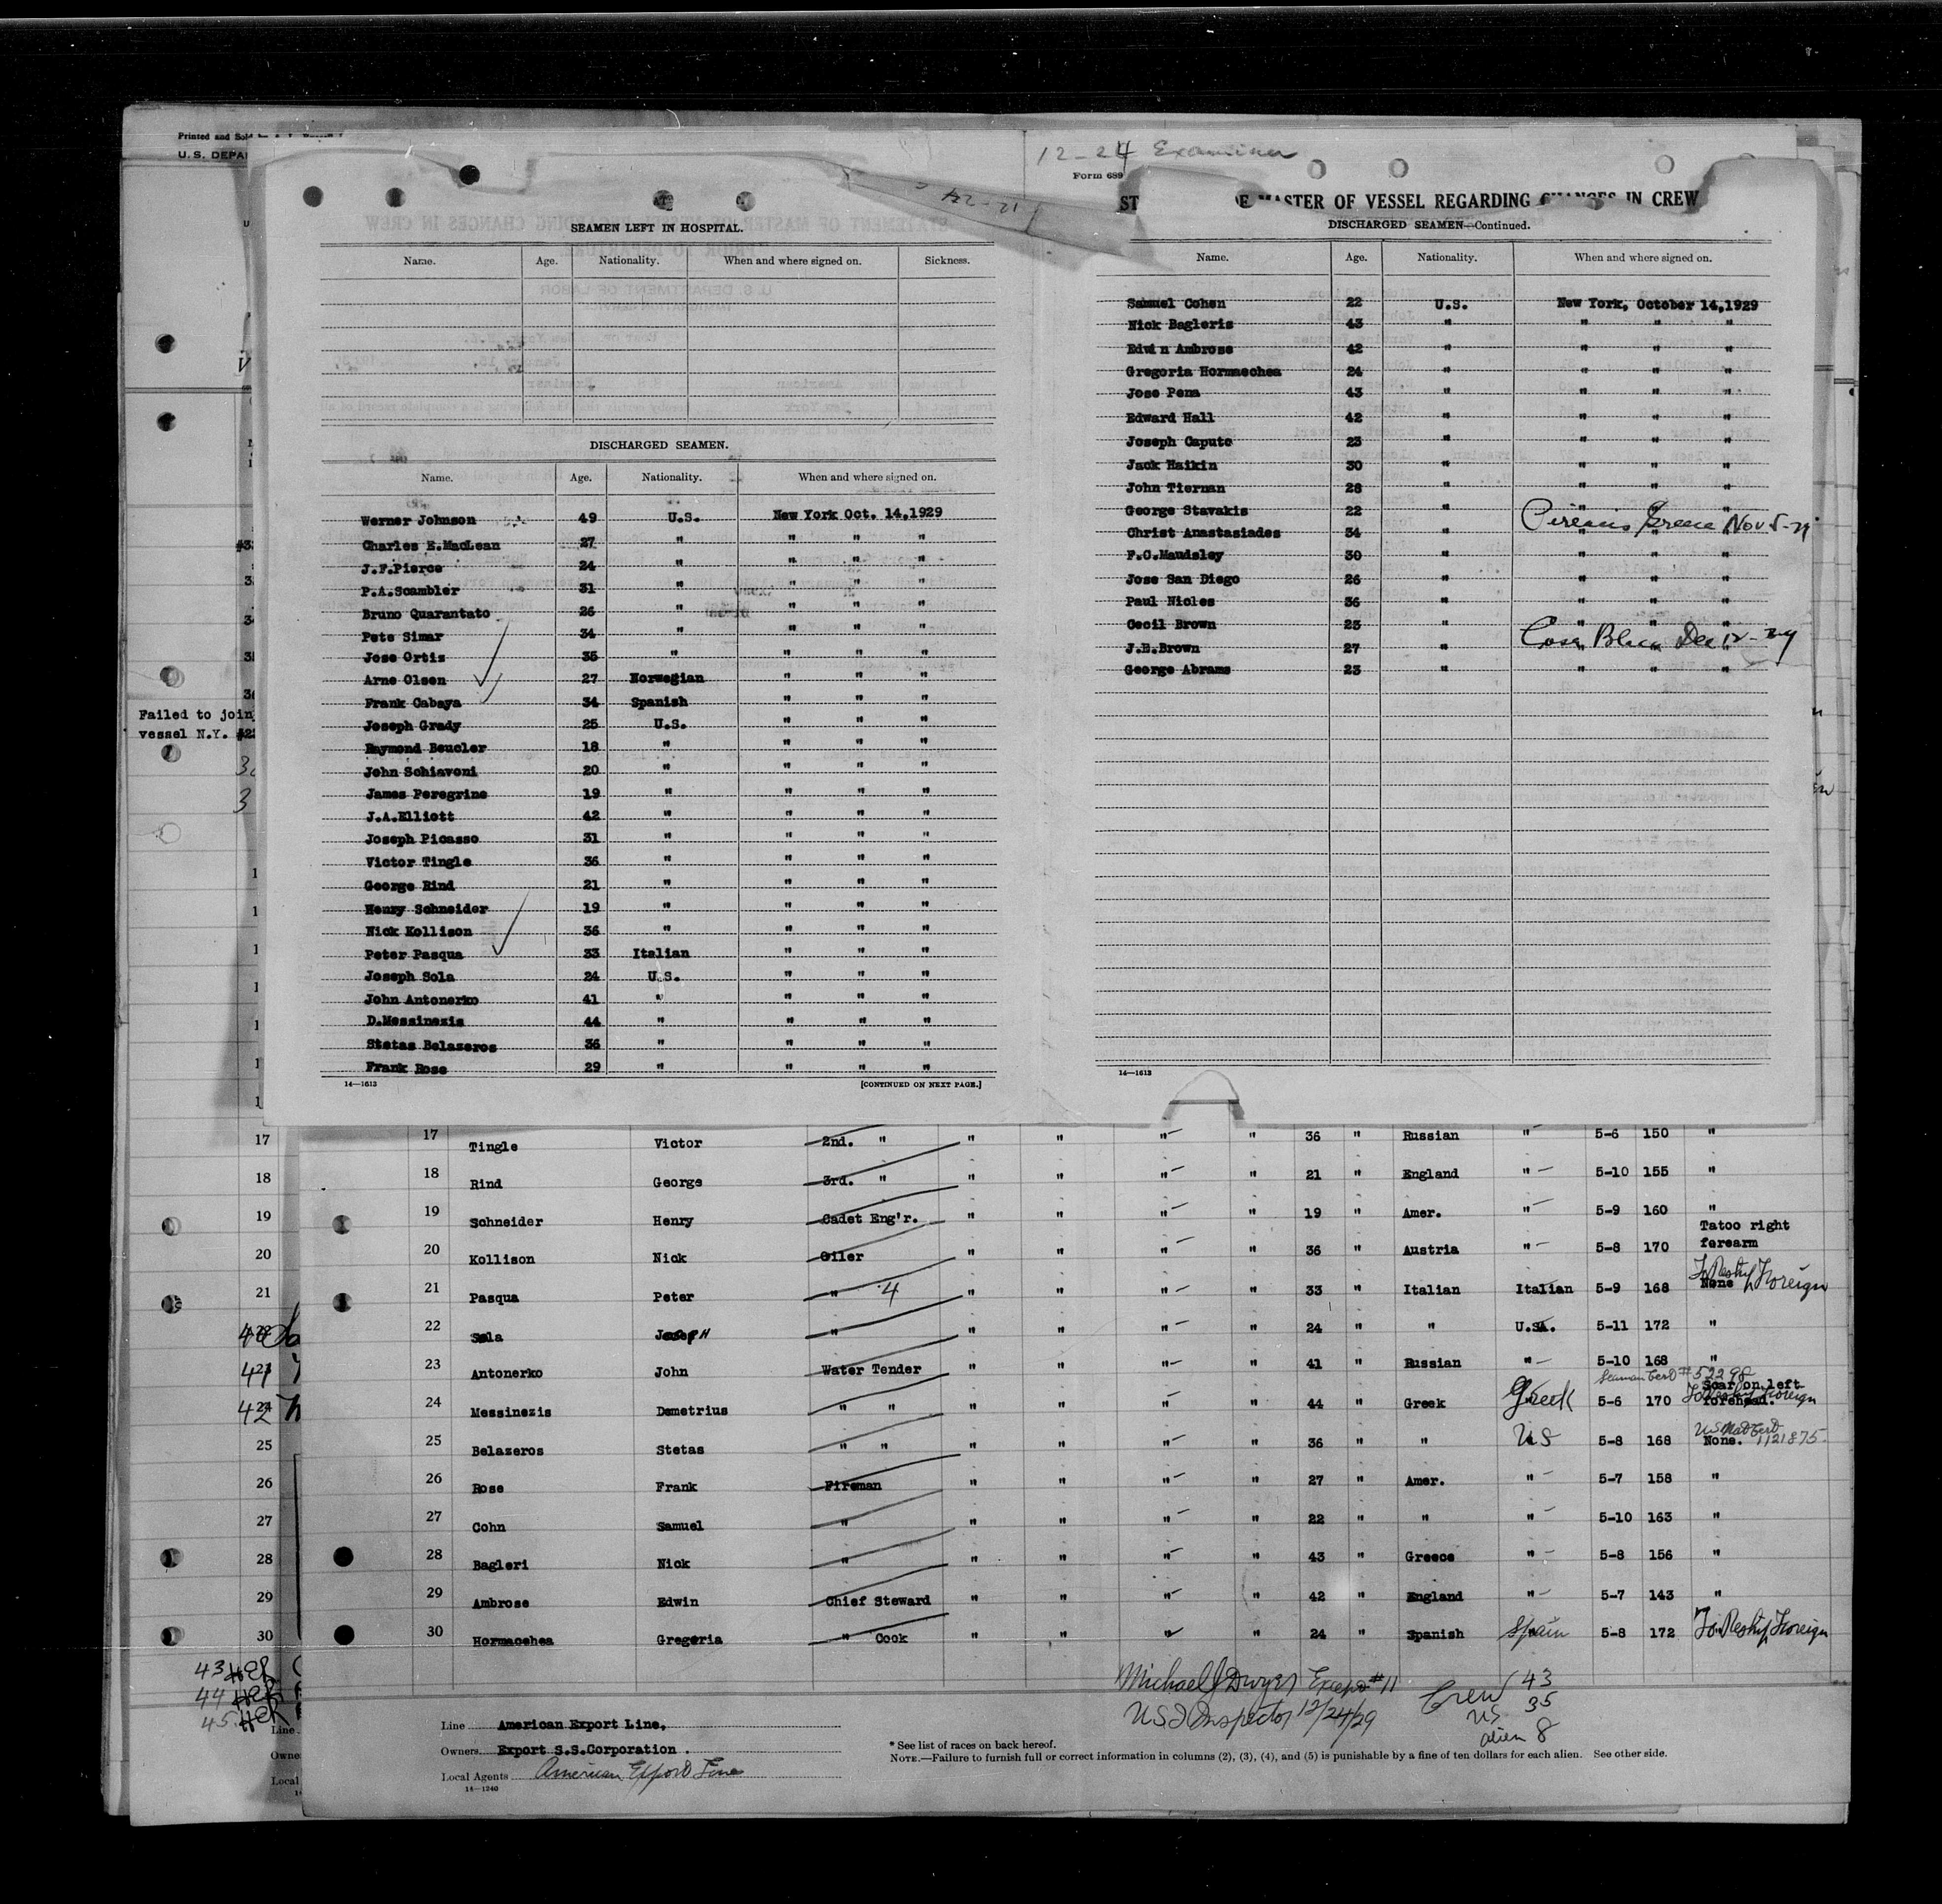 Printed and Sol
U. S. DEPA
12-24 Examiner
Form 689
12-24
SEAMEN LEFT IN HOSPITAL.
Name. Age. Nationality. When and where signed on. Sickness.
DISCHARGED SEAMEN.
Name. Age. Nationality. When and where signed on.
Werner Johnson 49 U.S. New York Oct. 14,1929
Charles E.MacLean 27 " " " "
J.F.Pierce 24 " " " "
P.A.Scambler 31 " " " "
Bruno Quarantato 26 " " " "
Pete Simar 34 " " " "
Jose Ortis 35 " " " "
Arne Olsen 27 Norwegian " " "
Frank Cabaya 34 Spanish " " "
Joseph Grady 25 U.S. " " "
Raymond Beucler 18 " " " "
John Schiavoni 20 " " " "
James Peregrine 19 " " " "
J.A.Elliott 42 " " " "
Joseph Picasso 31 " " " "
Victor Tingle 36 " " " "
George Rind 21 " " " "
Henry Schneider 19 " " " "
Nick Kollison 36 " " " "
Peter Pasqua 33 Italian " " "
Joseph Sola 24 U.S. " " "
John Antonerko 41 " " " "
D.Messinezis 44 " " " "
Stetas Belazeros 36 " " " "
Frank Rose 29 " " " "
14—1613 [CONTINUED ON NEXT PAGE.]
ST E MASTER OF VESSEL REGARDING CHANGES IN CREW
DISCHARGED SEAMEN—Continued.
Name. Age. Nationality. When and where signed on.
Samuel Cohen 22 U.S. New York, October 14,1929
Nick Bagleris 43 " " " "
Edwin Ambrose 42 " " " "
Gregoria Hormaechea 24 " " " "
Jose Pena 43 " " " "
Edward Hall 42 " " " "
Joseph Caputo 23 " " " "
Jack Haikin 30 " " " "
John Tiernan 28 " " " "
George Stavakis 22 " " " "
Pireaus Greece Nov 5-29
Christ Anastasiades 34 " " " "
F.C.Maudsley 30 " " " "
Jose San Diego 26 " " " "
Paul Nicles 36 " " " "
Cecil Brown 23 " " " "
Casa Blanca Dec 12-29
J.E.Brown 27 " " " "
George Abrams 23 " " " "
14—1613
Failed to join
vessel N.Y.
17 17 Tingle Victor 2nd. " " " " " 36 " Russian " 5-6 150 "
18 18 Rind George 3rd. " " " " " 21 " England " 5-10 155 "
19 19 Schneider Henry Cadet Eng'r. " " " " 19 " Amer. " 5-9 160 "
20 20 Kollison Nick Oiler " " " " 36 " Austria " 5-8 170 Tatoo right forearm
21 21 Pasqua Peter " 4 " " " " 33 " Italian Italian 5-9 168 None To Reship Foreign
22 Sola Joseph " " " " " 24 " " U.S.A. 5-11 172 "
41 23 Antonerko John Water Tender " " " " 41 " Russian " 5-10 168 "
Seaman Cert # 52298
42 24 Messinezis Demetrius " " " " " " 44 " Greek Greek 5-6 170 Scar on left forehead. To Reship Foreign
25 25 Belazeros Stetas " " " " " " 36 " " US 5-8 168 None. US Nat Cert 1121875
26 26 Rose Frank Fireman " " " " 27 " Amer. " 5-7 158 "
27 27 Cohn Samuel " " " " " 22 " " " 5-10 163 "
28 28 Bagleri Nick " " " " " 43 " Greece " 5-8 156 "
29 29 Ambrose Edwin Chief Steward " " " " 42 " England " 5-7 143 "
30 30 Hormaechea Gregoria " Cook " " " 24 " Spanish Spain 5-8 172 To Reship Foreign
43
44
45
Michael J Dwyer Except #11
U S I Inspector 12/24/29
Crew 43
US 35
alien 8
Line American Export Line.
Owners Export S.S.Corporation .
Local Agents American Export Line
14—1240
* See list of races on back hereof.
NOTE.—Failure to furnish full or correct information in columns (2), (3), (4), and (5) is punishable by a fine of ten dollars for each alien. See other side.
Line
Owne
Local